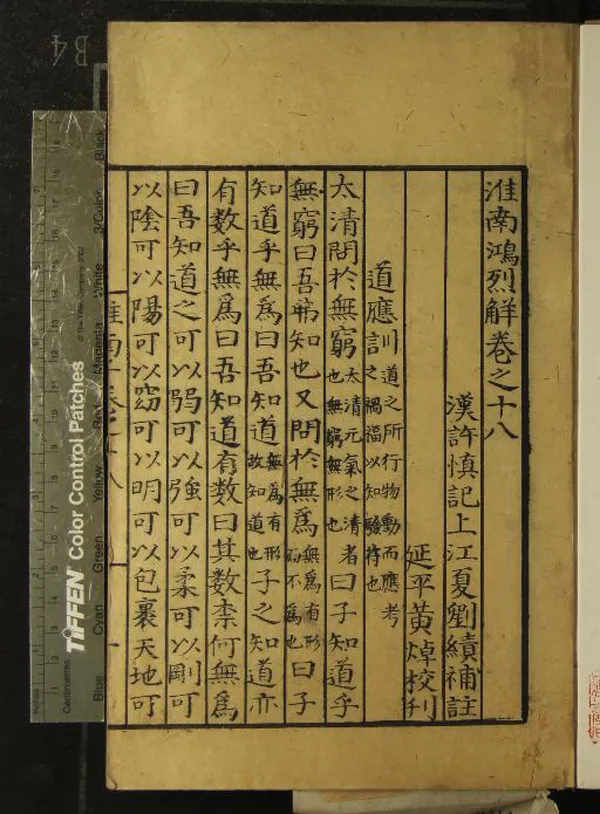 淮南鴻烈解卷之十八
漢許慎記上江夏劉績補註
延平黃焯校刊
道應訓道之所行物動而應考之禍福以知驗符也
太清問於無窮太清元氣之清者也無窮無形也曰子知道乎
無窮曰吾弗知也又問於無爲無爲有形而不爲也曰子
知道乎無爲曰吾知道無爲有形故知道也子之知道亦
有数乎無爲曰吾知道有数曰其数柰何無爲
曰吾知道之可以弱可以強可以柔可以剛可
以陰可以陽可以窈可以明可以包裹天地可
B4
TIFFEN Color Control Patches
© The Tiffen Company, 2007
Centimetres
Inches
Blue
Cyan
Green
Yellow
Red
Magenta
White
3/Color
Black